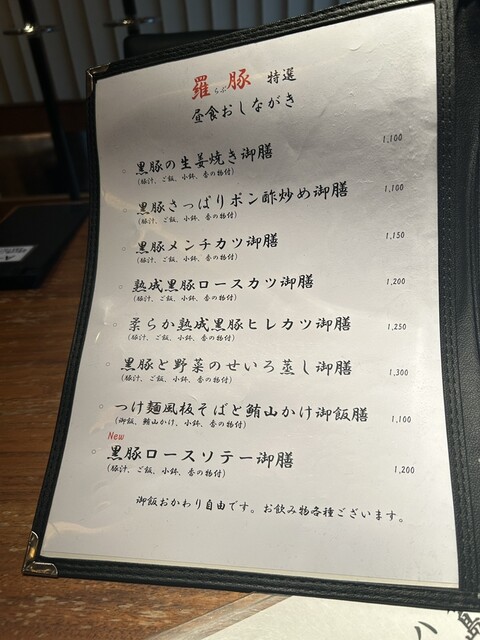 羅豚 特選
らぶ
昼食おしながき
黒豚の生姜焼き御膳 1,100
(豚汁、ご飯、小鉢、香の物付)
黒豚さっぱりポン酢炒め御膳 1,100
(豚汁、ご飯、小鉢、香の物付)
黒豚メンチカツ御膳 1,150
(豚汁、ご飯、小鉢、香の物付)
熟成黒豚ロースカツ御膳 1,200
(豚汁、ご飯、小鉢、香の物付)
柔らか熟成黒豚ヒレカツ御膳 1,250
(豚汁、ご飯、小鉢、香の物付)
黒豚と野菜のせいろ蒸し御膳 1,300
(豚汁、ご飯、小鉢、香の物付)
つけ麺風板そばと鮪山かけ御飯膳 1,100
(御飯、鮪山かけ、小鉢、香の物付)
New
黒豚ロースソテー御膳 1,200
(豚汁、ご飯、小鉢、香の物付)
御飯おかわり自由です。お飲み物各種ございます。